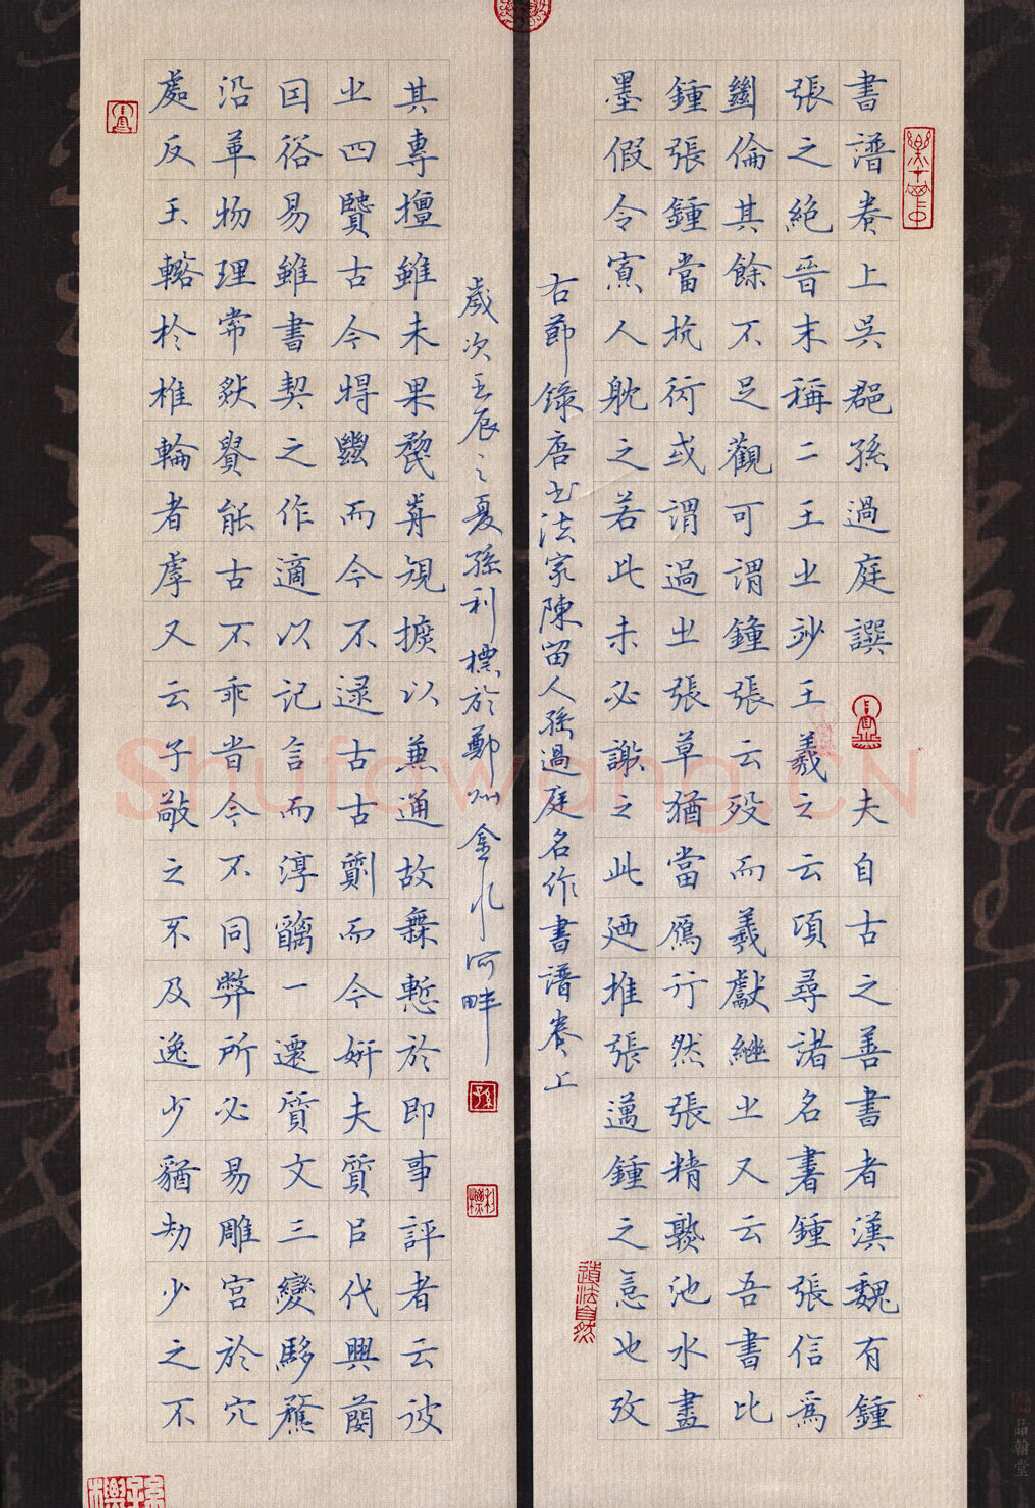 書譜卷上吳郡孫過庭撰 夫自古之善書者漢魏有鍾
張之絕晉末稱二王之妙王羲之云頃尋諸名書鍾張信為
絕倫其餘不足觀可謂鍾張云歿而羲獻繼之又云吾書比
鍾張鍾當抗行或謂過之張草猶當鴈行然張精熟池水盡
墨假令寡人耽之若此未必謝之此乃推張邁鍾之意也攷
右節錄唐书法家陳留人孫過庭名作書譜卷上
道法自然
歲次壬辰之夏孫利標於鄭州金水河畔
其專擅雖未果前規摭以兼通故無慙於即事評者云彼
之四賢古今特絕而今不逮古古質而今妍夫質以代興
因俗易雖書契之作適以記言而淳醨一遷質文三變馳騖
沿革物理常然貴能古不乖時今不同弊所必易雕宮於穴
處反玉輅於椎輪者乎又云子敬之不及逸少猶劫少之不
Shufawang.CN